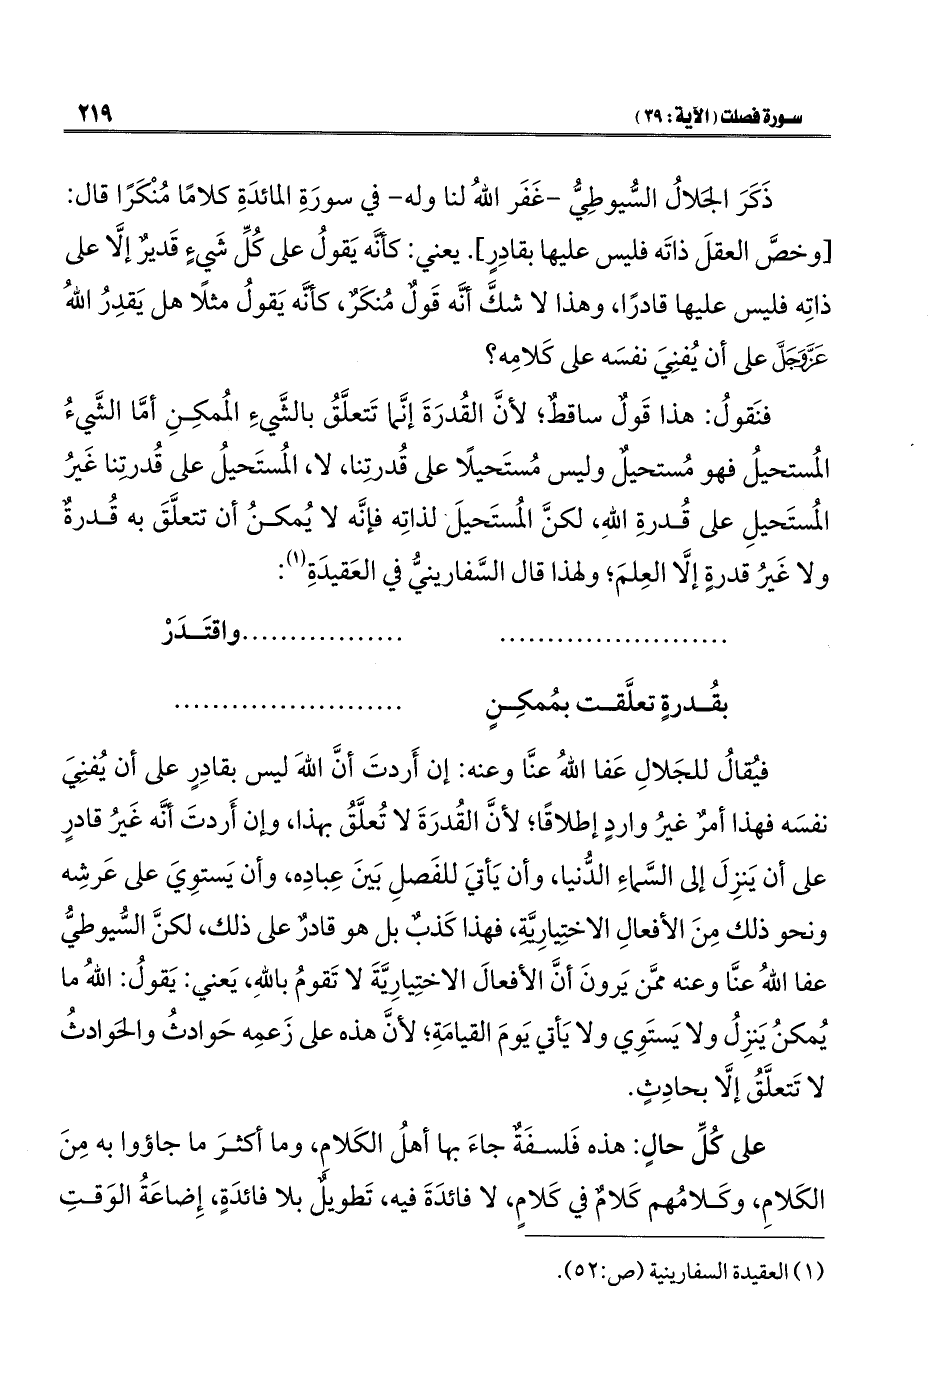 سورة فصلت (الآية: ٣٩) ٢١٩
ذَكَرَ الجَلالُ السُّيوطِيُّ -غَفَر اللهُ لنا وله- في سورَةِ المائدَةِ كلامًا مُنْكَرًا قال:
[وخصَّ العقلَ ذاتَه فليس عليها بقادِرٍ]. يعني: كأنَّه يَقولُ على كُلِّ شيءٍ قَديرٌ إلَّا على
ذاتِه فليس عليها قادرًا، وهذا لا شكَّ أنَّه قَولٌ مُنكَرٌ، كأنَّه يَقولُ مثلًا هل يَقدِرُ اللهُ
عَزَّوَجَلَّ على أن يُفنِيَ نفسَه على كَلامِه؟
فنَقولُ: هذا قَولٌ ساقطٌ؛ لأنَّ القُدرَةَ إنَّما تَتعلَّقُ بالشَّيءِ المُمكِنِ أمَّا الشَّيءُ
المُستحيلُ فهو مُستحيلٌ وليس مُستَحيلًا على قُدرتِنا، لا، المُستَحيلُ على قُدرتِنا غَيرُ
المُستَحيلِ على قُدرةِ اللهِ، لكنَّ المُستَحيلَ لذاتِه فإنَّه لا يُمكنُ أن تتعلَّقَ به قُدرةٌ
ولا غَيرُ قدرةٍ إلَّا العِلمَ؛ ولهذا قال السَّفارينيُّ في العَقيدَةِ(١):
........................ .................واقتَدَرْ
بقُدرةٍ تعلَّقت بمُمكِنٍ ........................
فيُقالُ للجَلالِ عَفا اللهُ عنَّا وعنه: إن أَردتَ أنَّ اللهَ ليس بقادرٍ على أن يُفنِيَ
نفسَه فهذا أمرٌ غيرُ واردٍ إطلاقًا؛ لأنَّ القُدرَةَ لا تُعلَّقُ بهذا، وإن أَردتَ أنَّه غَيرُ قادرٍ
على أن يَنزِلَ إلى السَّماءِ الدُّنيا، وأن يَأتيَ للفَصلِ بَينَ عِبادِه، وأن يَستوِيَ على عَرشِه
ونحو ذلك مِنَ الأفعالِ الاختِياريَّةِ، فهذا كَذبٌ بل هو قادرٌ على ذلك، لكنَّ السُّيوطيَّ
عفا اللهُ عنَّا وعنه ممَّن يَرونَ أنَّ الأفعالَ الاختِياريَّةَ لا تَقومُ باللهِ، يَعني: يَقولُ: اللهُ ما
يُمكنُ يَنزِلُ ولا يَستَوِي ولا يَأتي يَومَ القيامَةِ؛ لأنَّ هذه على زَعمِه حَوادثُ والحَوادثُ
لا تَتعلَّقُ إلَّا بحادِثٍ.
على كُلِّ حالٍ: هذه فَلسفَةٌ جاءَ بها أهلُ الكَلامِ، وما أكثرَ ما جاؤوا به مِنَ
الكَلامِ، وكَلامُهم كَلامٌ في كَلامٍ، لا فائدَةَ فيه، تَطويلٌ بلا فائدَةٍ، إضاعَةُ الوَقتِ
(١) العقيدة السفارينية (ص:٥٢).